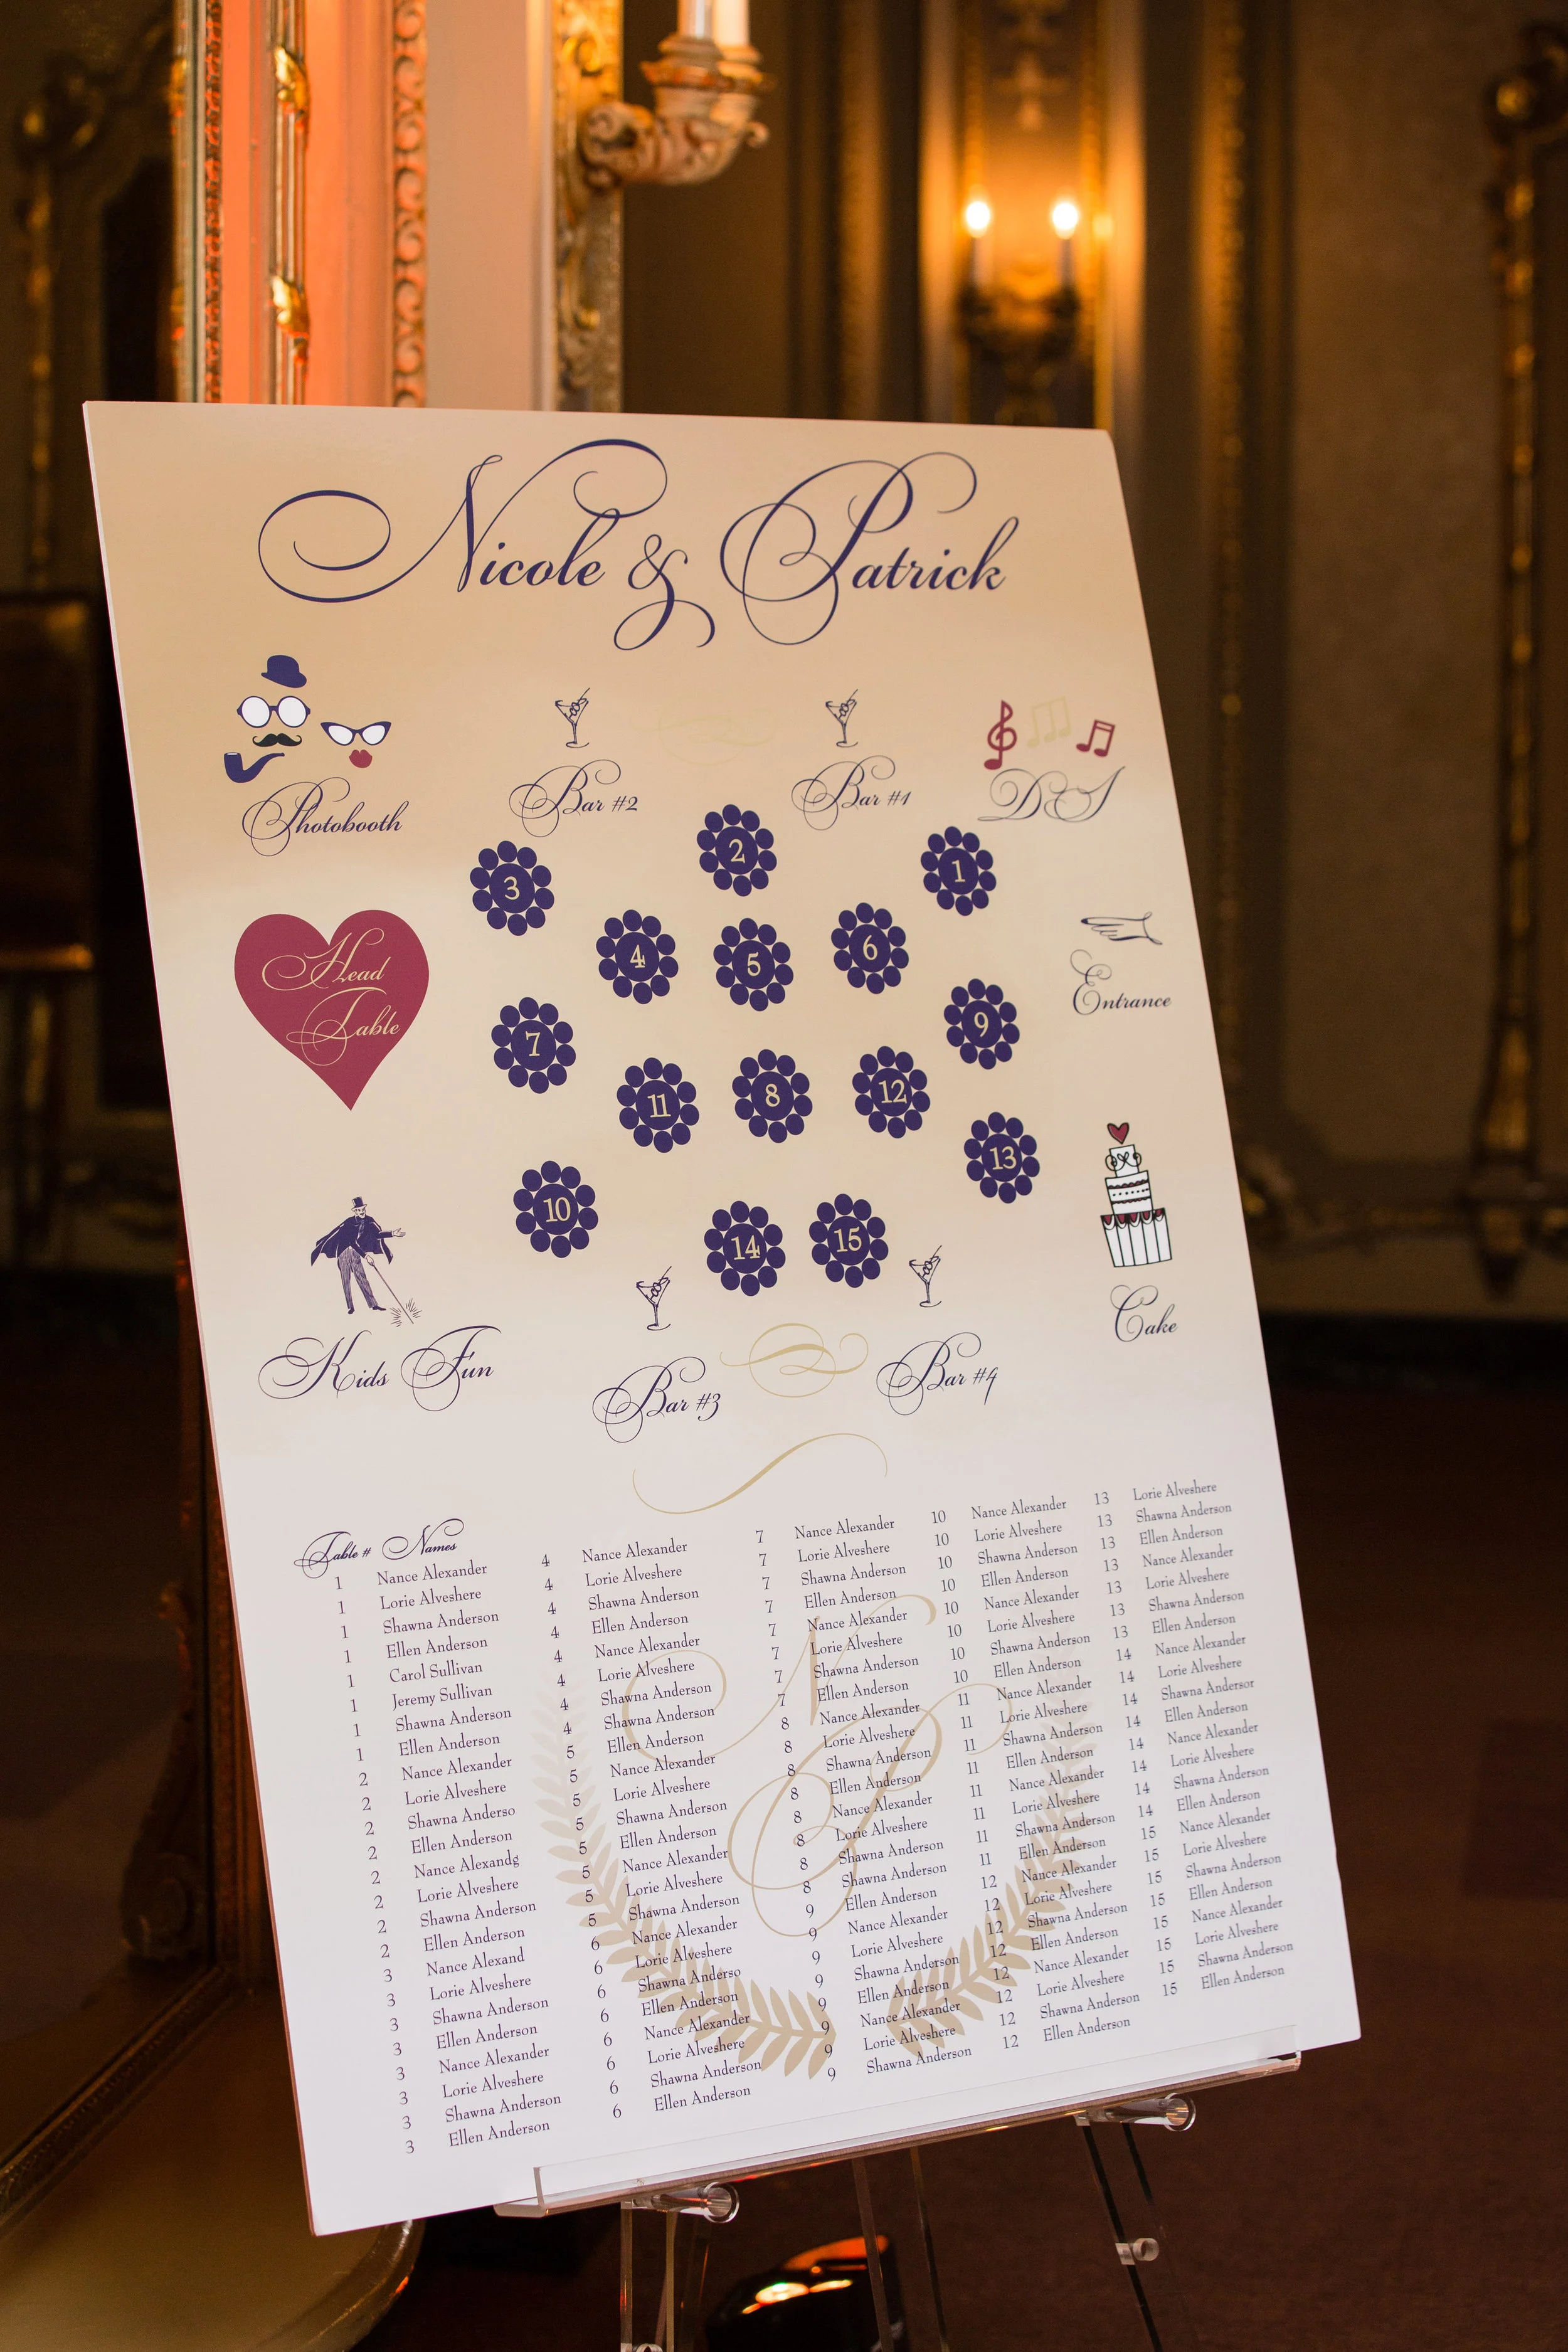 Nicole & Patrick
Photobooth
Bar #2
Bar #1
DJ
2
3
1
4
5
6
Head
Table
Entrance
7
9
11
8
12
13
10
14
15
Kids Fun
Bar #3
Bar #4
Cake
Table # Names
1 Nance Alexander
1 Lorie Alveshere
1 Shawna Anderson
1 Ellen Anderson
1 Carol Sullivan
1 Jeremy Sullivan
1 Shawna Anderson
1 Ellen Anderson
2 Nance Alexander
2 Lorie Alveshere
2 Shawna Anderso
2 Ellen Anderson
2 Nance Alexandg
2 Lorie Alveshere
2 Shawna Anderson
2 Ellen Anderson
3 Nance Alexand
3 Lorie Alveshere
3 Shawna Anderson
3 Ellen Anderson
3 Nance Alexander
3 Lorie Alveshere
3 Shawna Anderson
3 Ellen Anderson
4 Nance Alexander
4 Lorie Alveshere
4 Shawna Anderson
4 Ellen Anderson
4 Nance Alexander
4 Lorie Alveshere
4 Shawna Anderson
4 Shawna Anderson
5 Ellen Anderson
5 Nance Alexander
5 Lorie Alveshere
5 Shawna Anderson
5 Ellen Anderson
5 Nance Alexander
5 Lorie Alveshere
5 Shawna Anderson
6 Nance Alexander
6 Lorie Alveshere
6 Shawna Anderso
6 Ellen Anderson
6 Nance Alexander
6 Lorie Alveshere
6 Shawna Anderson
6 Ellen Anderson
7 Nance Alexander
7 Lorie Alveshere
7 Shawna Anderson
7 Ellen Anderson
7 Nance Alexander
7 Lorie Alveshere
7 Shawna Anderson
7 Ellen Anderson
8 Nance Alexander
8 Lorie Alveshere
8 Shawna Anderson
8 Ellen Anderson
8 Nance Alexander
8 Lorie Alveshere
8 Shawna Anderson
8 Shawna Anderson
9 Ellen Anderson
9 Nance Alexander
9 Lorie Alveshere
9 Shawna Anderson
9 Ellen Anderson
9 Nance Alexander
9 Lorie Alveshere
9 Shawna Anderson
10 Nance Alexander
10 Lorie Alveshere
10 Shawna Anderson
10 Ellen Anderson
10 Nance Alexander
10 Lorie Alveshere
10 Shawna Anderson
10 Ellen Anderson
11 Nance Alexander
11 Lorie Alveshere
11 Shawna Anderson
11 Ellen Anderson
11 Nance Alexander
11 Lorie Alveshere
11 Shawna Anderson
11 Ellen Anderson
12 Nance Alexander
12 Lorie Alveshere
12 Shawna Anderson
12 Ellen Anderson
12 Nance Alexander
12 Lorie Alveshere
12 Shawna Anderson
12 Ellen Anderson
13 Lorie Alveshere
13 Shawna Anderson
13 Ellen Anderson
13 Nance Alexander
13 Lorie Alveshere
13 Shawna Anderson
13 Ellen Anderson
14 Nance Alexander
14 Lorie Alveshere
14 Shawna Andersor
14 Ellen Anderson
14 Nance Alexander
14 Lorie Alveshere
14 Shawna Anderson
14 Ellen Anderson
15 Nance Alexander
15 Lorie Alveshere
15 Shawna Anderson
15 Ellen Anderson
15 Nance Alexander
15 Lorie Alveshere
15 Shawna Anderson
15 Ellen Anderson
N
P